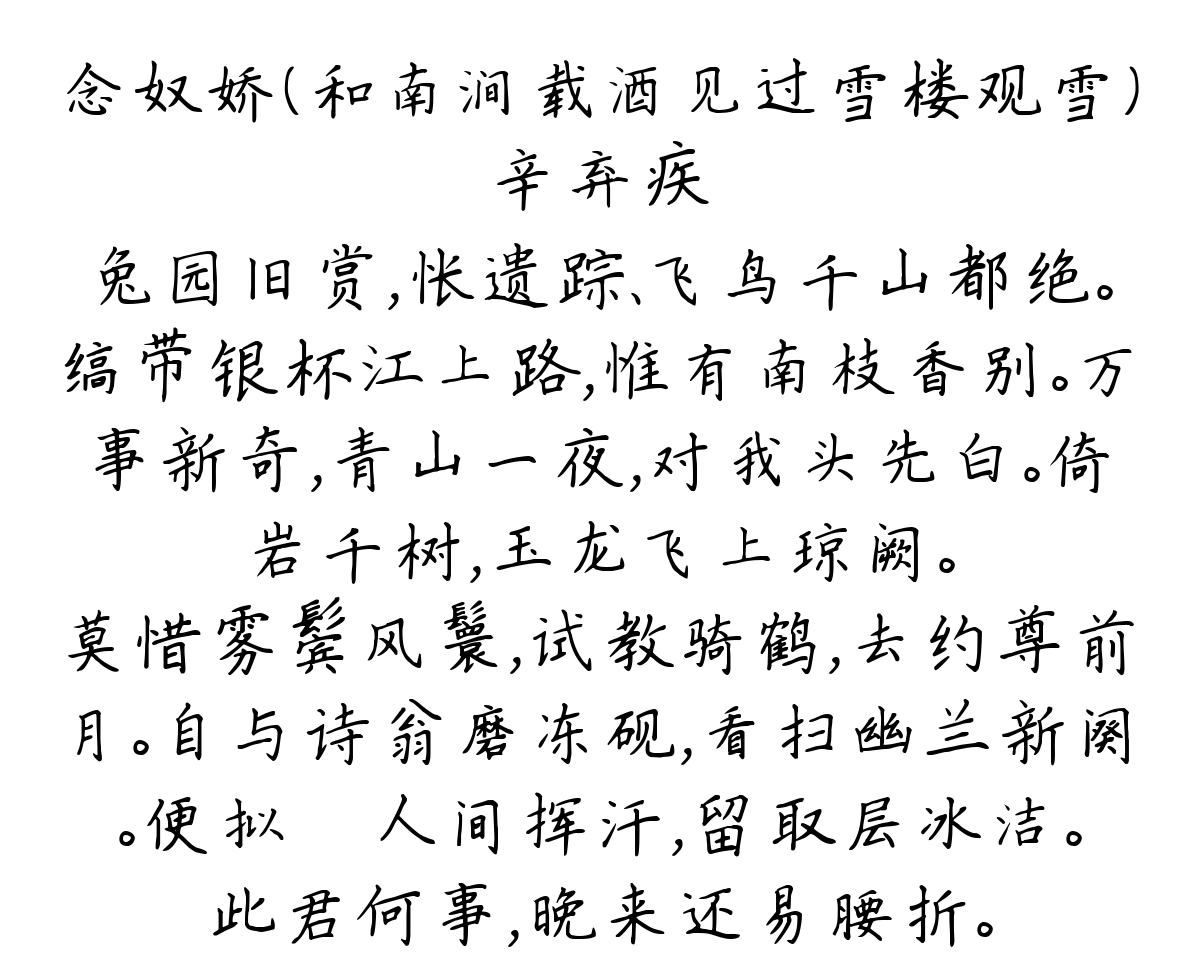 念奴娇(和南涧载酒见过雪楼观雪)
辛弃疾
兔园旧赏,怅遗踪、飞鸟千山都绝。
缟带银杯江上路,惟有南枝香别。万
事新奇,青山一夜,对我头先白。倚
岩千树,玉龙飞上琼阙。
莫惜雾鬓风鬟,试教骑鹤,去约尊前
月。自与诗翁磨冻砚,看扫幽兰新阕
。便拟 人间挥汗,留取层冰洁。
此君何事,晚来还易腰折。